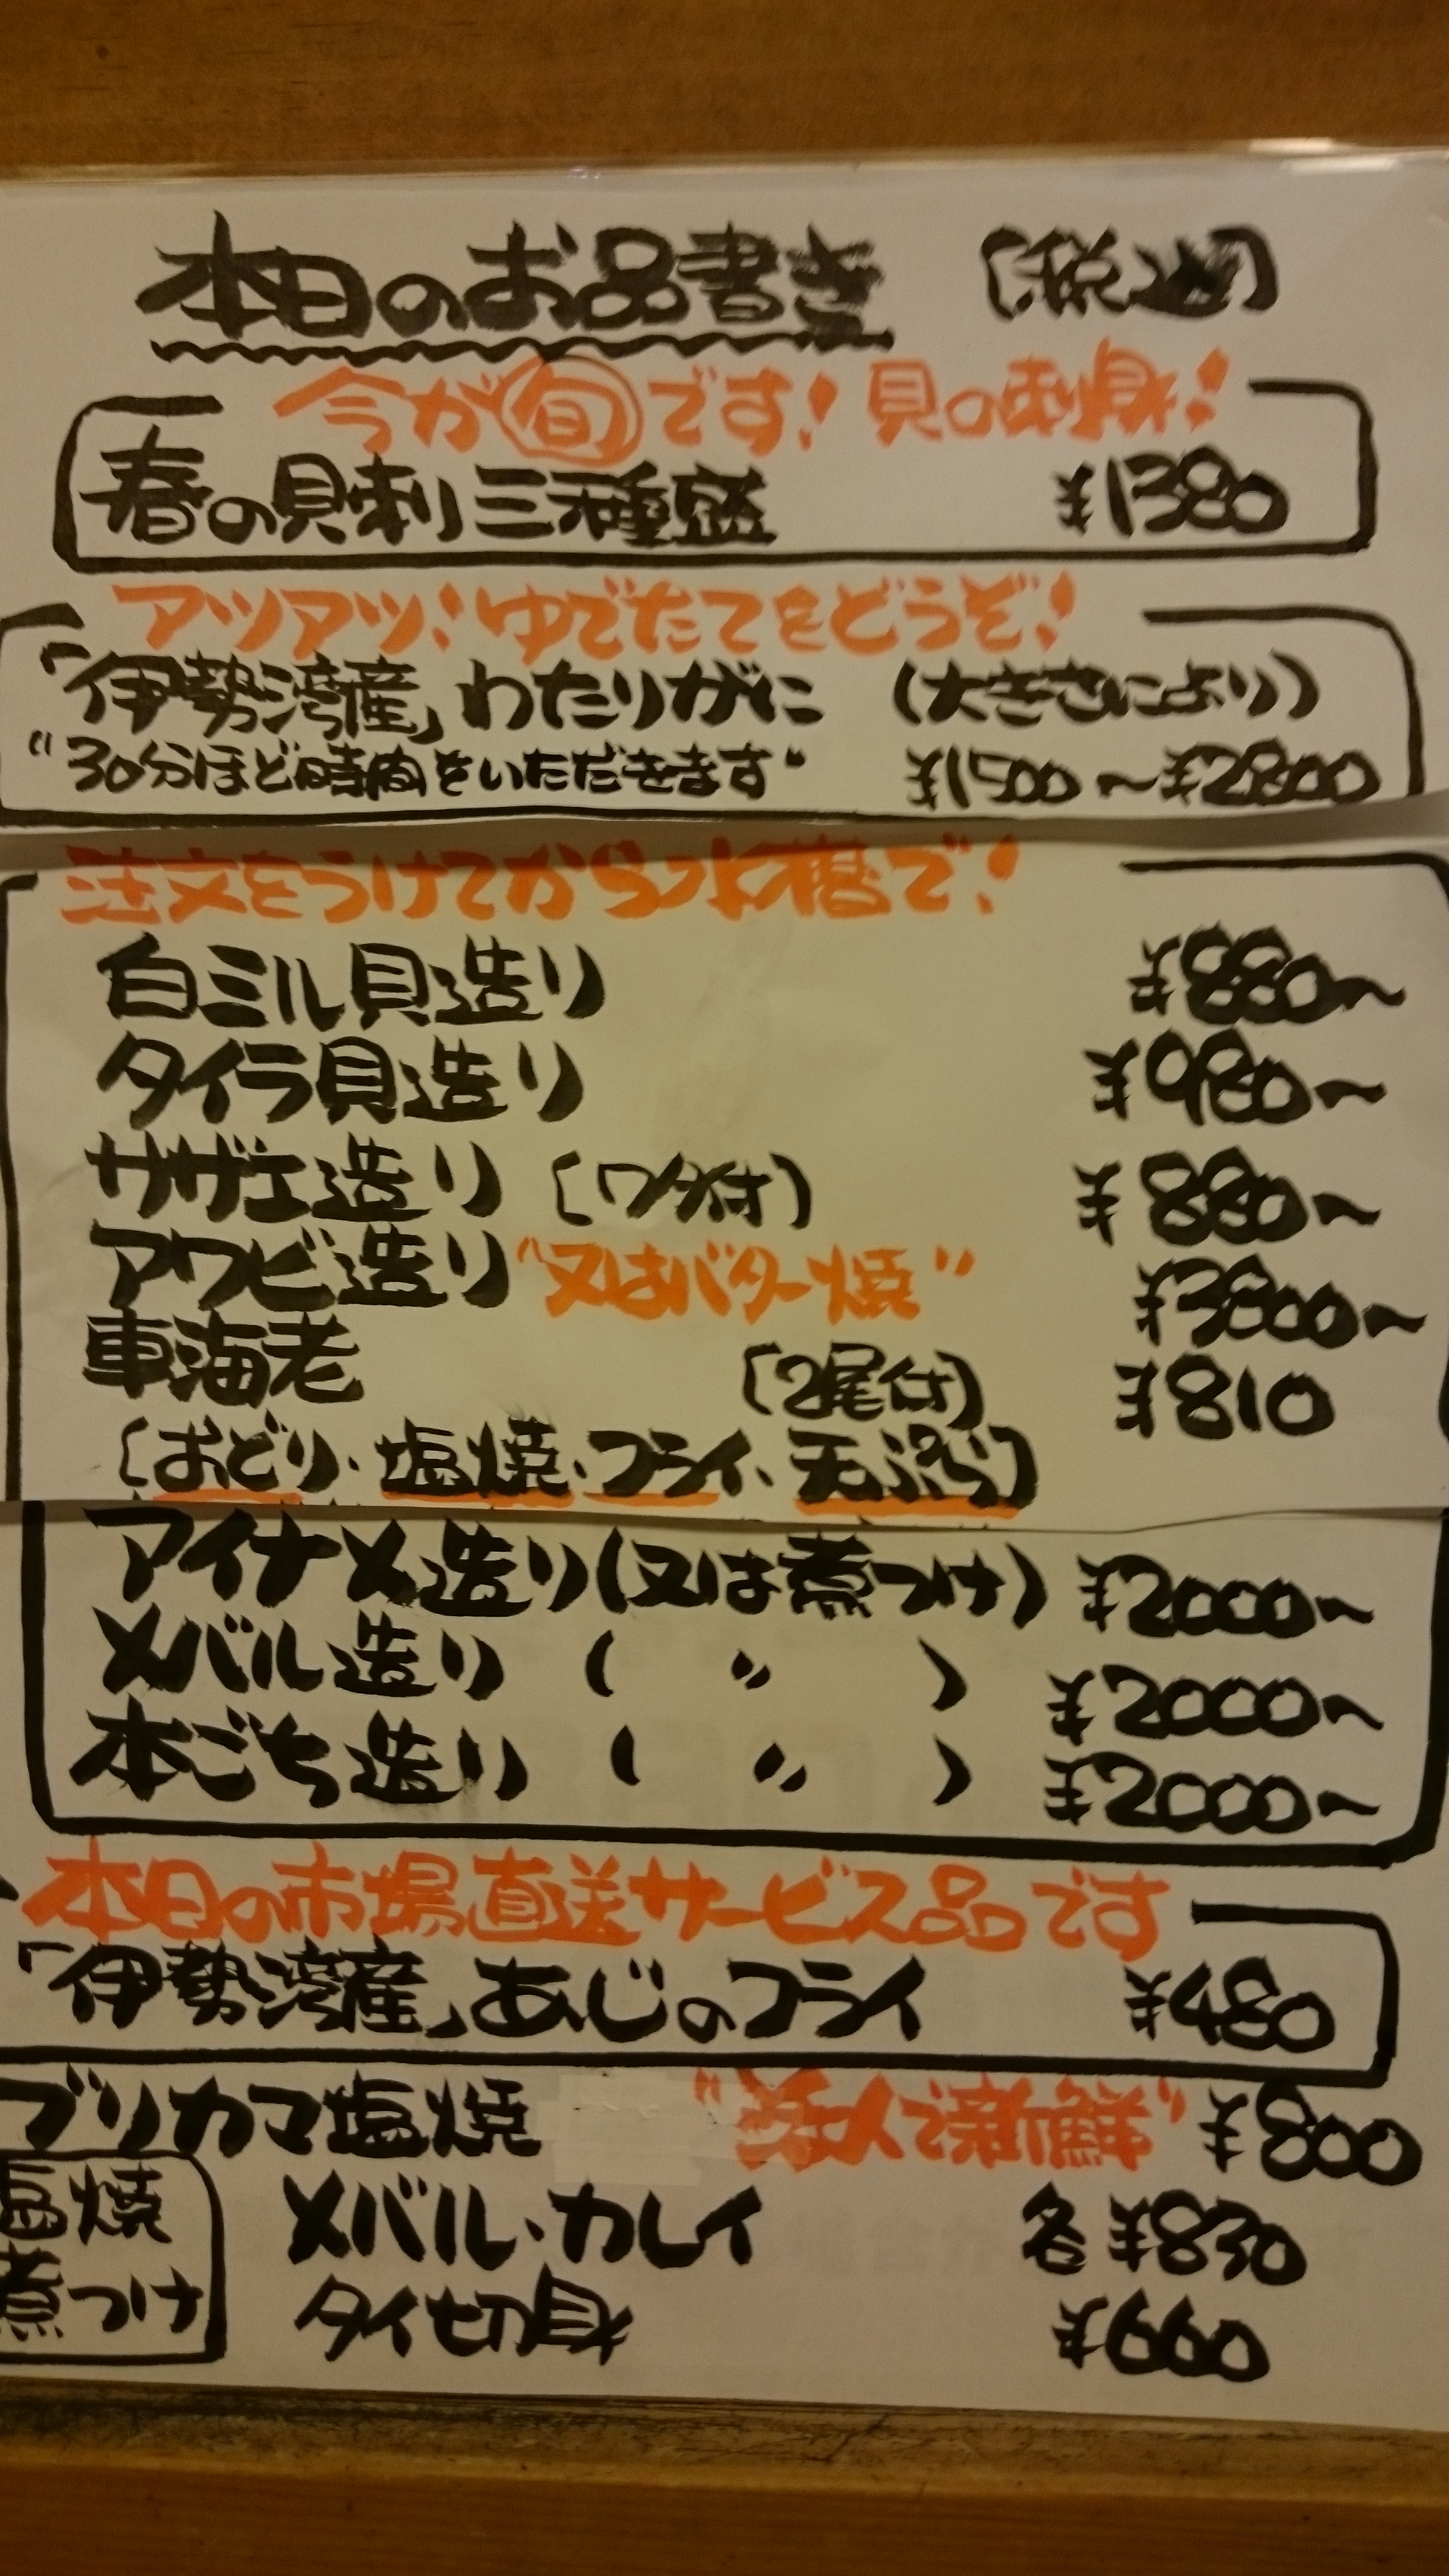 本日のお品書き [税込]
今が旬です!貝の刺身!
春の貝刺三種盛 ¥1380
アツアツ!ゆでたてをどうぞ!
「伊勢湾産」わたりがに (大きさにより)
"30分ほど時間をいただきます" ¥1500〜¥2800
注文をうけてから水槽で!
白ミル貝造り ¥880〜
タイラ貝造り ¥980〜
サザエ造り [ワタ付] ¥880〜
アワビ造り "又はバター焼" ¥3800〜
車海老 [2尾付] ¥810
[おどり・塩焼・フライ・天ぷら]
アイナメ造り(又は煮つけ) ¥2000〜
メバル造り ( 〃 ) ¥2000〜
本ごち造り ( 〃 ) ¥2000〜
本日の市場直送サービス品です
「伊勢湾産」あじのフライ ¥480
ブリカマ塩焼 "活〆で新鮮" ¥800
塩焼 メバル・カレイ 各 ¥830
煮つけ タイ切身 ¥660